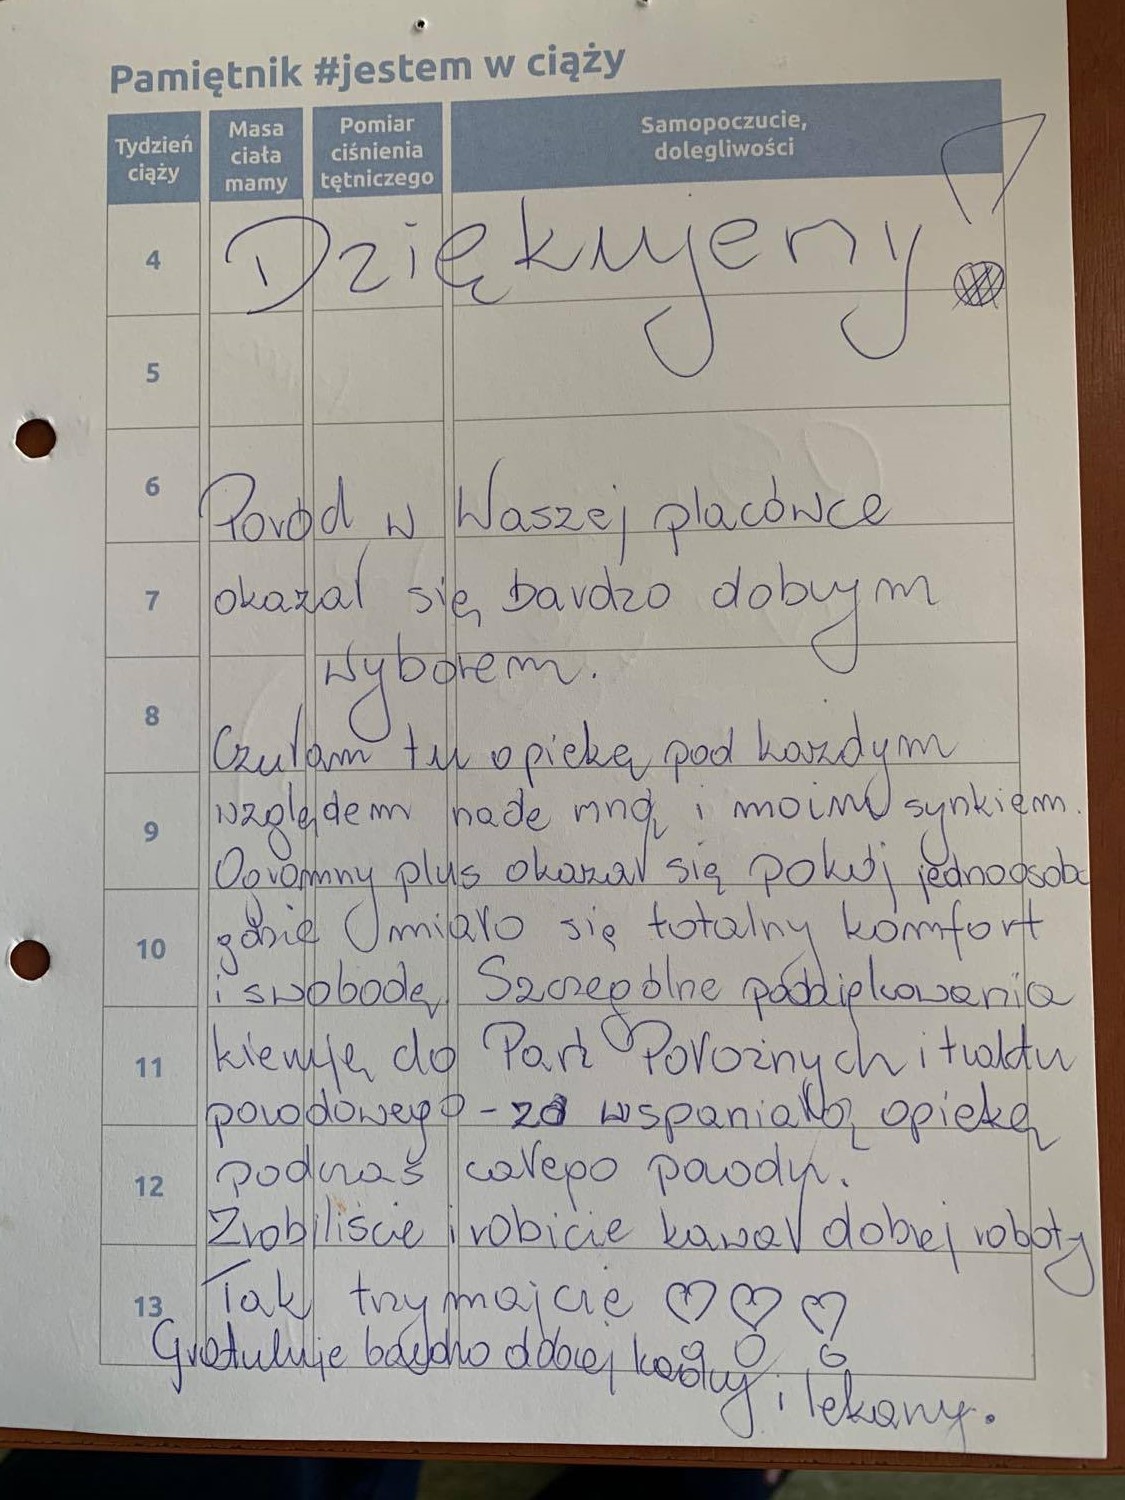 Pamiętnik #jestem w ciąży
Tydzień ciąży
Masa ciała mamy
Pomiar ciśnienia tętniczego
Samopoczucie, dolegliwości
4
Dziękujemy!
5
6
Poród w Waszej placówce
7
okazał się bardzo dobrym
wyborem.
8
Czułam tu opiekę pod każdym
9
względem nade mną i moim synkiem.
Ogromny plus okazał się pokój jednoosob
10
gdzie miało się totalny komfort
i swobodę. Szczególne podziękowania
11
kieruję do Pań Położnych i traktu
porodowego - za wspaniałą opiekę
12
podczas całego porodu.
Zrobiliście i robicie kawał dobrej roboty
13
Tak trzymajcie ♡ ♡ ♡
Gratuluję bardzo dobrej kadry i lekarzy.